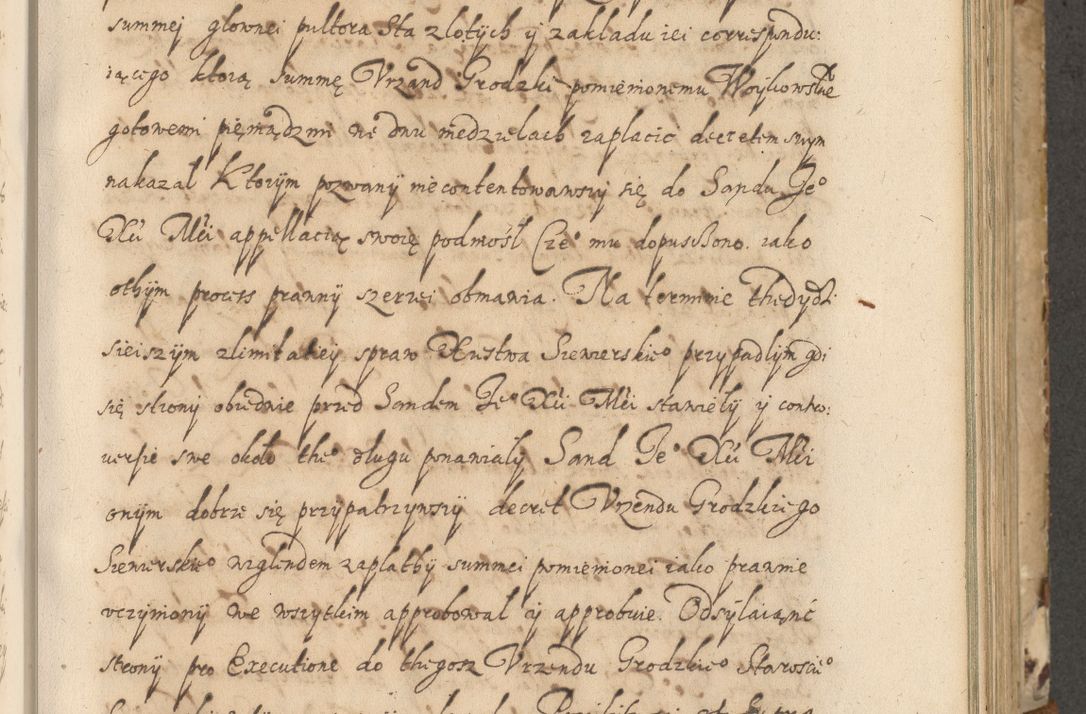 summej głownei pułtora sta złotych ÿ zakładu iei correspondu:
iącego ktorą summę Vrzand Grodzki pomienionemu Woÿkowskie
gotowemi pięniądzmi na dnu niedzielach zapłacic decretem swym
nakazał Ktorÿm pozwanÿ niecontentowawsÿ się do Sandu Je°
Xci Mći appellacią swoię podniosł Cze° mu dopusczono. iako
othÿm process prawnÿ szerzei obmawia. Na terminie thedÿ dzi
sieiszÿm zlimitatiej spraw Xustwa Siewierskie° przypadłÿm gdi
się stronÿ obiednie przed Sandem Je° Xći Mći stawiełÿ ÿ contro:
uersie swe około the° długu ponawiałÿ Sand Je° Xći Mći
onÿm dobrze się przÿpatrzÿwsÿ decret Vrzendu Grodzkiego
Siewierskie° wzglendem zapłathÿ summei pomienionei iako prawnie
vczÿnionÿ we wszÿtkim approbował ÿ approbuie. Odsÿłaiąnć
stronÿ pro Executione do thegosz Vrzendu Grodzkie° Staroscie°